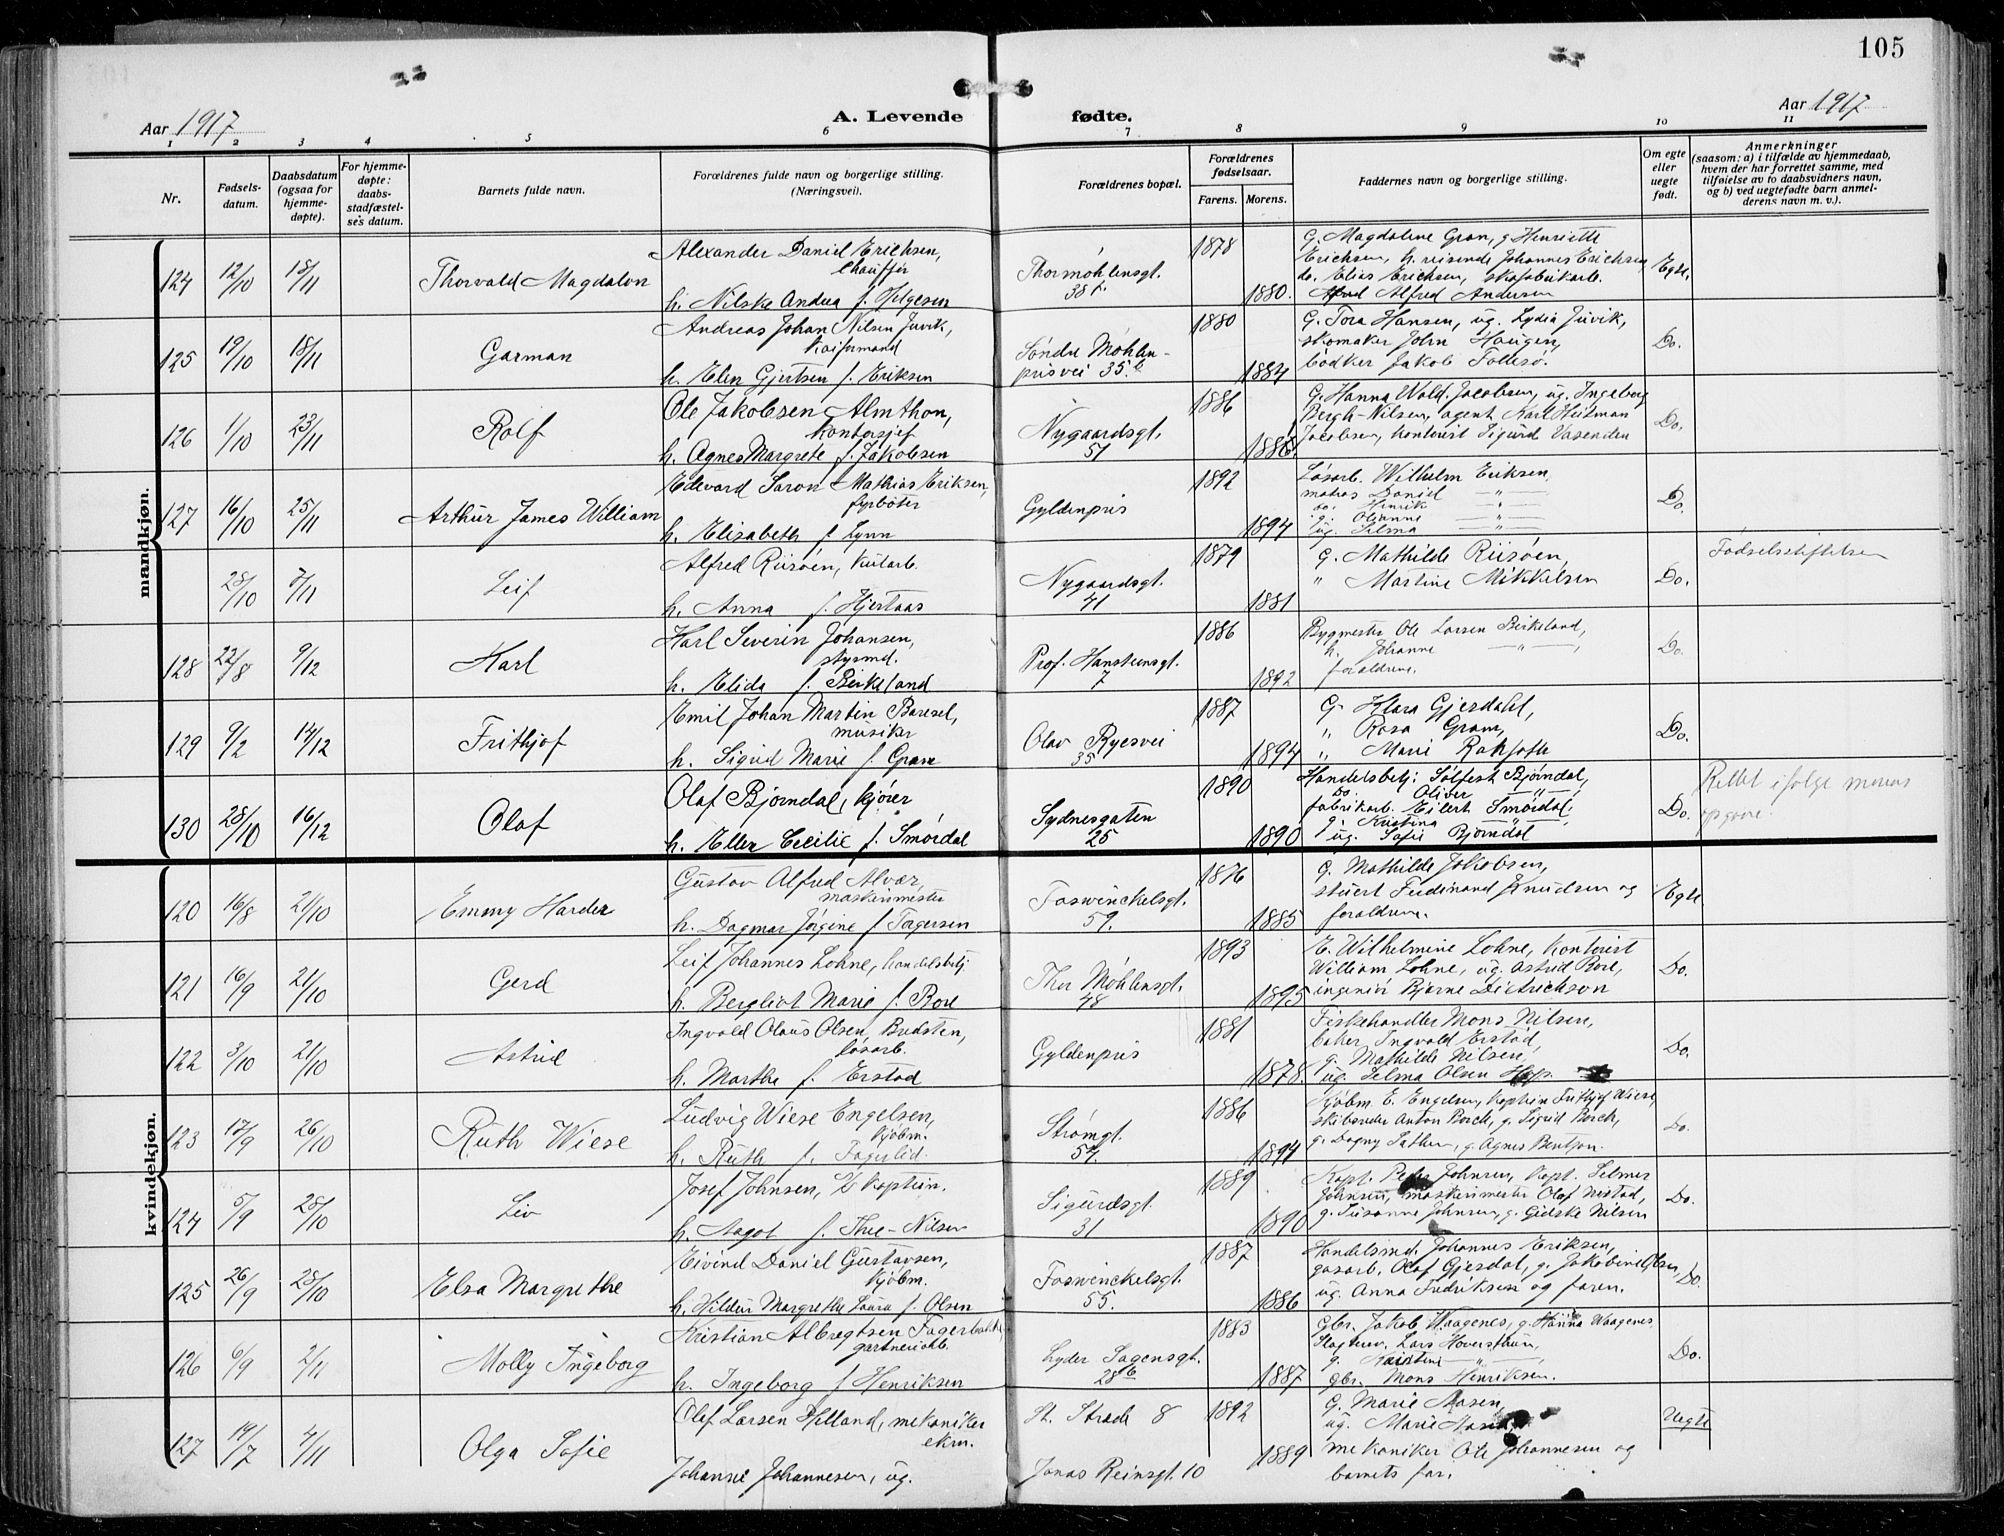 105
Aar 1917
A. Levende fødte.
Aar 1917
1 2 3 4 5 6 7 8 9 10 11
Nr.
Fødselsdatum.
Daabsdatum (ogsaa for hjemmedøpte).
For hjemmedøpte: daabsstadfæstelses datum.
Barnets fulde navn.
Forældrenes fulde navn og borgerlige stilling. (Næringsvei).
Forældrenes bopæl.
Forældrenes fødselsaar.
Farens. Morens.
Faddernes navn og borgerlige stilling.
Om egte eller uegte født.
Anmerkninger
(saasom: a) i tilfælde av hjemmedaab, hvem der har forrettet samme, med tilføielse av to daabsvidners navn, og b) ved uegtefødte barn anmelderens navn m. v.).
mandkjøn.
124 12/10 18/11 Thorvald Magdalon
Alexander Daniel Erichsen,
chauffør
h. Nilske Andrea f. Helgesen
Thormøhlensgt.
38
1878
1880.
G. Magdalene Gran, g. Henriette
Erichsen, h. reisende Johannes Erichsen
do. Elias Erichsen, skofabrikarb.
Alfred Andersen
Egte.
125 19/10 18/11 Garman
Andreas Johan Nilsen Juvik,
kaiformand
h. Elen Gjertsen f. Eriksen
Søndre Møhlen-
prisvei 35 b
1880
1884
G. Tora Hansen, ug. Lydia Juvik,
skomaker John Haugen,
bødker Jakob Follesø.
Do.
126 1/10 23/11 Rolf
Ole Jakobsen Almthon,
kontorsjef
h. Agnes Margrete f. Jakobsen
Nygaardsgt.
51
1886
1886
G. Hanna Wold Jacobsen, ug. Ingeborg
Bergh-Nilsen, agent Karl Heitman
Jacobsen, kontorist Sigurd Vasenden
Do.
127 16/10 25/11 Arthur James William
Edevard Saron Mathias Eriksen,
fyrbøter
h. Elisabeth f. Lynn
Gyldenpris
1892
1894
Løsarb. Wilhelm Eriksen,
matros Daniel —"—
do. Henrik —"—
g. Olianne —"—
ug. Selma —"—
Do.
28/10 7/11 Leif
Alfred Riisøen, kulark.
h. Anna f. Hjertaas
Nygaardsgt.
41
1879
1881
G. Mathilde Riisøen,
" Martine Mikkelsen
Do.
Fødselsstiftelsen
128 22/8 9/12 Karl
Karl Severin Johansen,
styrmd.
h. Elida f. Birkeland
Prof. Hansteensgt.
7
1886
1892
Bygmester Ole Larsen Birkeland,
h. Johanne —"—,
forældrene.
Do.
129 9/2 14/12 Frithjof
Emil Johan Martin Baresel,
musiker
h. Sigrid Marie f. Gram
Olav Ryesvei
35
1887
1894
G. Klara Gjerdahl,
" Rosa Gram,
" Marie Raksoth
Do.
130 28/10 16/12 Olaf
Olaf Bjørndal, kjører
h. Ellen Cecilie f. Smørdal
Sydnesgaten
25
1890
1890
Handelsbetj. Sølfest Bjørndal,
Do. Oliver —"—
fabrikarb. Eilert Smørdal,
g. Kristina —"—,
ug. Sofie Bjørndal
Do.
Rettet ifølge morens
opgave.
kvindekjøn.
120 16/8 21/10 Emmy Harder
Gustav Alfred Alvær,
maskinmester
h. Dagmar Jørgine f. Torgersen
Foswinckelsgt.
59.
1876
1885
G. Mathilde Jakobsen,
stuert Ferdinand Knudsen og
forældrene.
Egte
121 16/9 21/10 Gerd
Leif Johannes Lohne, handelsbetj.
h. Bergliot Marie f. Bore
Thor Møhlensgt.
48
1893
1895
E. Wilhelmine Lohne, kontorist
William Lohne, ug. Astrid Bore,
ingeniør Bjarne Dietrichson
Do.
122 3/10 21/10 Astrid
Ingvald Olaus Olsen Budsten,
løsarb.
h. Marthe f. Erstad
Gyldenpris
1881
1878.
Fiskehandler Mons Nilsen,
baker Ingvald Erstad,
g. Mathilde Nilsen,
ug. Selma Olsen Hop.
Do.
123 17/9 26/10 Ruth Wiese
Ludvig Wiese Engelsen,
kjøbm.
h. Ruth f. Fagerlid.
Strømgt.
54.
1886
1894
Kjøbm. E. Engelsen, kaptein Frithjof Wiese,
skibsreder Anton Borch, g. Sigrid Borch,
g. Dagny Sather, g. Agnes Bentzon.
Do.
124 5/9 28/10 Liv
Josef Johnsen, kaptein.
h. Aagot f. Thue-Nilsen
Sigurdsgt.
31
1889
1890
Kapt. Peter Johnsen, kapt. Selmer
Johnsen, maskinmester Olaf Nestad,
g. Susanne Johnsen, g. Gidske Nilsen
Do.
125 26/9 28/10 Elsa Margrethe
Eivind Daniel Gustavsen,
kjøbm.
h. Hildur Margrethe Laura f. Olsen
Foswinckelsgt.
55.
1887
1886
Handelsmd. Johannes Eriksen,
gasarb. Olaf Gjesdal, g. Jakobine Olsen,
ug. Anna Fredriksen og faren.
Do.
126 6/9 2/11 Molly Ingeborg
Kristian Albregtsen Fagerbakke,
gartneriarb.
h. Ingeborg f. Henriksen
Lyder Sagensgt.
28 b
1883
1887
Gbr. Jakob Waagenes, g. Hanna Waagenes
Lars Hoverstrum,
g. Kristine —"—,
gbr. Mons Henriksen.
Do.
127 19/7 4/11 Olga Sofie
Olaf Larsen Hilland, mekaniker
ekm.
Johanne Johannesen, ug.
St. Strede 8
Jonas Reinsgt. 10
1892
1889
G. Marie Aasen,
ug. Marie
mekaniker Ole Johannesen og
barnets far.
Uegte